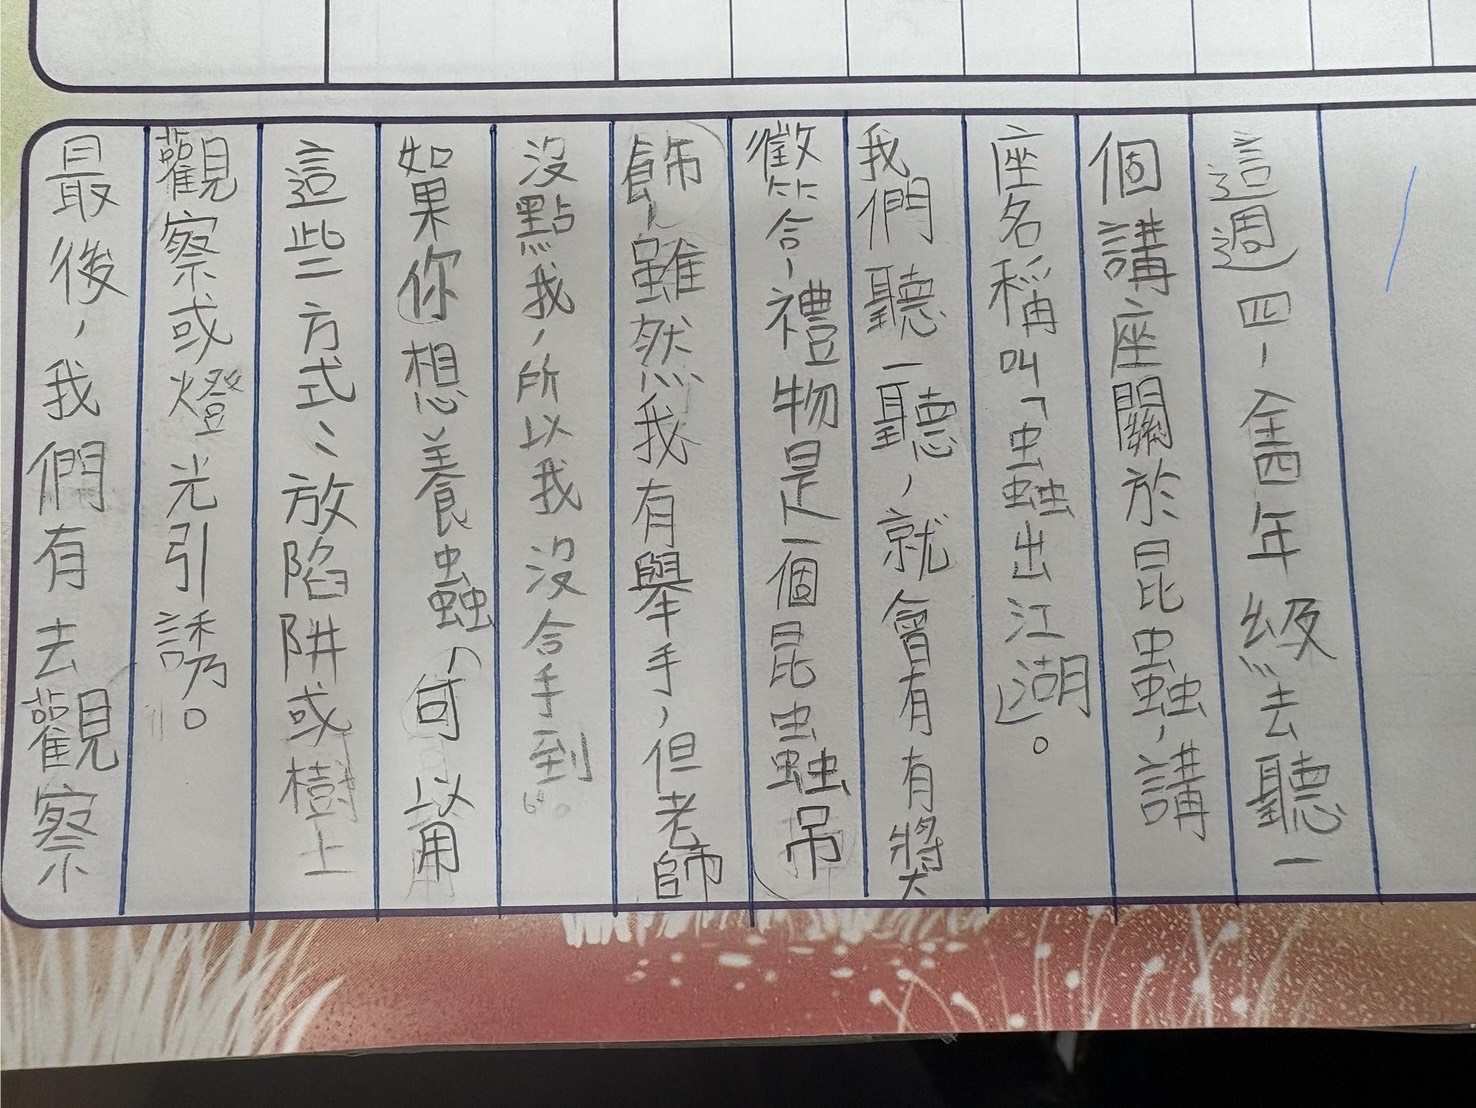 這週四,全四年級去聽一
個講座關於昆蟲,講
座名稱叫「蟲出江湖」。
我們聽一聽,就會有有獎
徵答,禮物是一個昆蟲吊
飾,雖然我有舉手,但老師
沒點我,所以我沒合手到。
如果你想養蟲,可以用
這些方式:放陷阱或樹上
觀察或燈光引誘。
最後,我們有去觀察